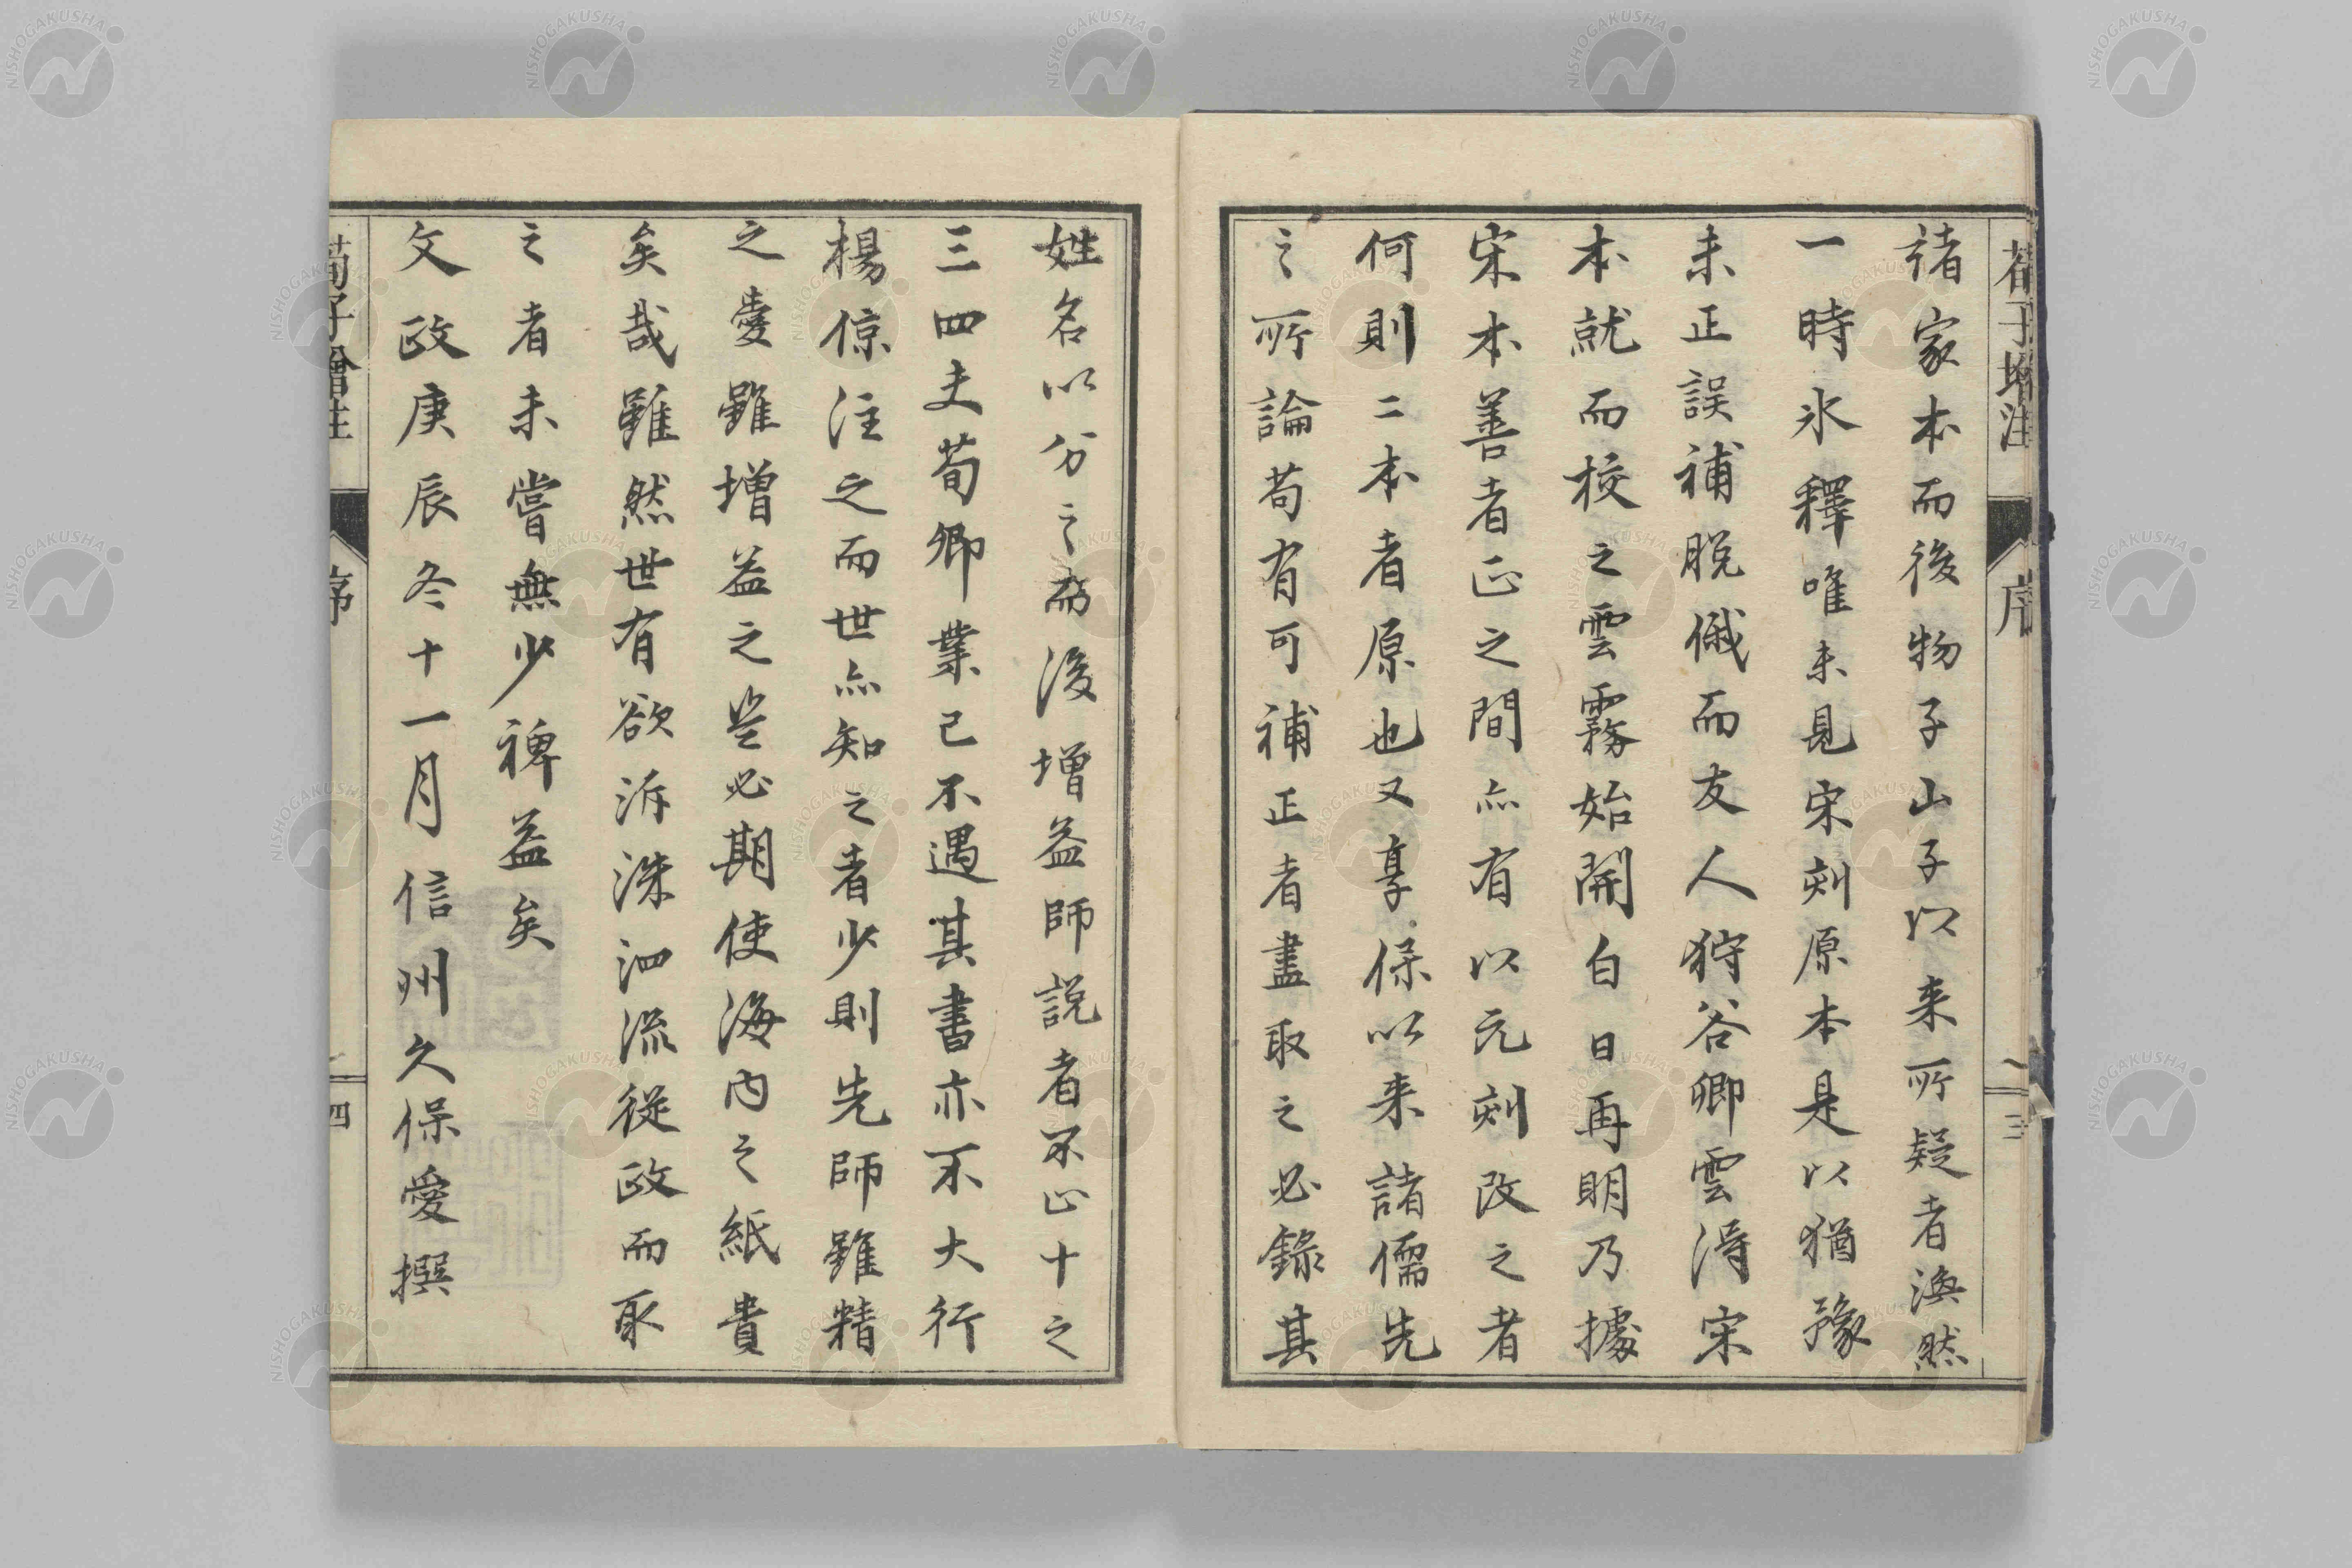 荀子增注
序
三
諸家本而後物子山子以来所疑者渙然
一時氷釋唯未見宋刻原本是以猶豫
未正誤補脱偶而友人狩谷卿雲得宋
本就而校之雲霧始開白日再明乃據
宋本善者正之間亦有以元刻改之者
何則二本者原也又享保以来諸儒先
之所論苟有可補正者盡取之必錄其
姓名以分之而後增益師説者不止十之
三四夫荀卿業已不遇其書亦不大行
楊倞注之而世亦知之者少則先師雖精
之愛雖增益之豈必期使海内之紙貴
矣哉雖然世有欲泝洙泗流從政而取
之者未嘗無少裨益矣
文政庚辰冬十一月信州久保愛撰
荀子增注
序
四
NISHOGAKUSHA